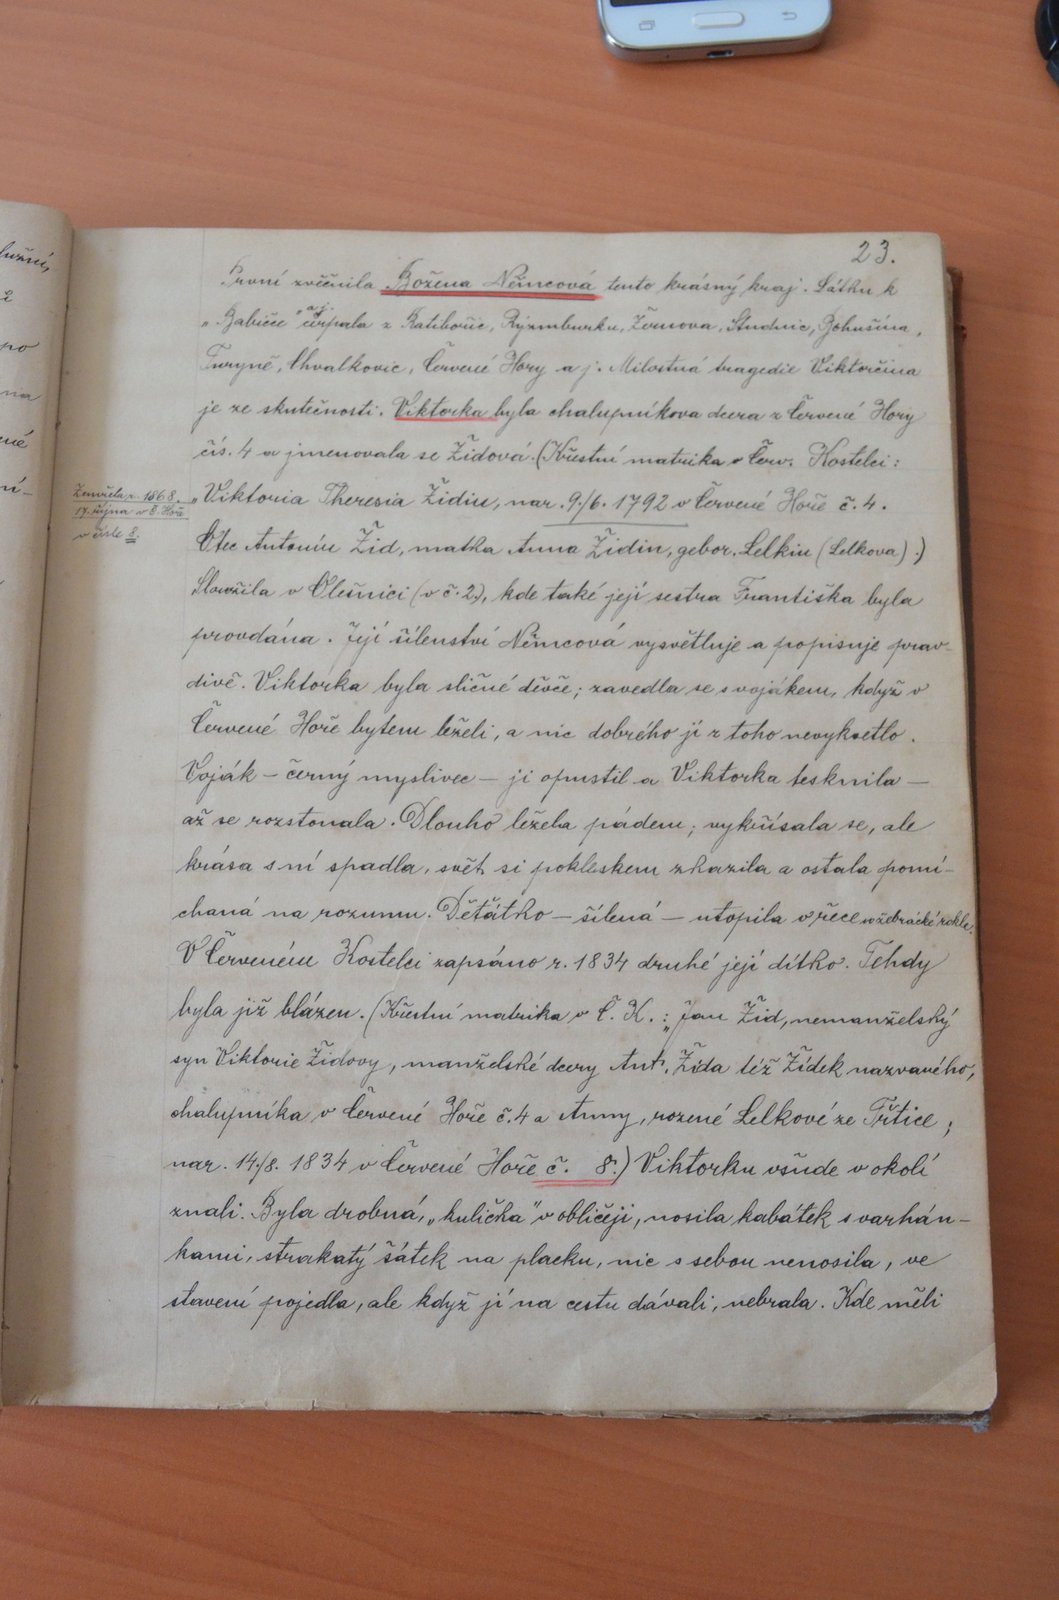 23.
První zvěčnila Božena Němcová tento krásný kraj. Látku k
„Babičce" a j. čerpala z Ratibořic, Rýzmburku, Žernova, Studnic, Bohušína,
Turyně, Chvalkovic, Červené Hory a j. Milostná tragedie Viktorčina
je ze skutečnosti. Viktorka byla chalupníkova dcera z Červené Hory
čís. 4 a jmenovala se Židová. (Křestní matrika v Červ. Kostelci:
„Viktoria Theresia Židin, nar. 9./6. 1792 v Červené Hoře č. 4.
Zemřela r. 1868.
17. října v Č. Hoře
v čísle 8.
Otec Antonín Žid, matka Anna Židin, gebor. Lelkin (Lelkova).)
Sloužila v Olešnici (v č. 2.), kde také její sestra Františka byla
provdána. Její šílenství Němcová vysvětluje a popisuje prav-
divě. Viktorka byla sličné děvče; zavedla se s vojákem, když v
Červené Hoře bytem leželi, a nic dobrého jí z toho nevykvetlo.
Voják – černý myslivec – ji opustil a Viktorka tesknila –
až se rozstonala. Dlouho ležela pádem; vykřísala se, ale
krása s ní spadla, svět si pokleskem zkazila a ostala pomí-
chaná na rozumu. Děťátko – šílená – utopila v řece v žebrácké rokli.
V Červeném Kostelci zapsáno r. 1834 druhé její dítko. Tehdy
byla již blázen. (Křestní matrika v Č. K.: „Jan Žid, nemanželský
syn Viktorie Židovy, manželské dcery Ant. Žida též Žídek nazvaného,
chalupníka v Červené Hoře č. 4 a Anny, rozené Lelkové ze Trtice;
nar. 14./8. 1834 v Červené Hoře č. 8.) Viktorku všude v okolí
znali. Byla drobná, „kulička" v obličeji, nosila kabátek s varhán-
kami, strakatý šátek na placku, nic s sebou nenosila, ve
stavení pojedla, ale když jí na cestu dávali, nebrala. Kde měli